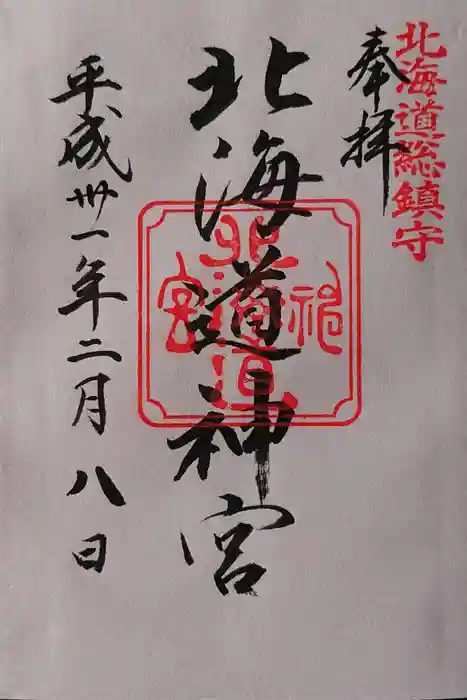 北海道総鎮守
奉拝
北海道神宮
北海道神宮
平成卅一年二月八日